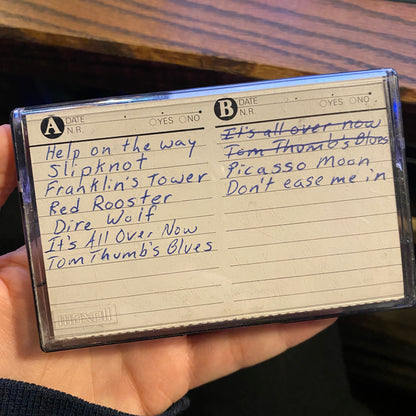 A DATE
N.R. YES NO
Help on the way
Slipknot
Franklin's Tower
Red Rooster
Dire Wolf
It's All Over Now
Tom Thumb's Blues
maxell
B DATE
N.R. YES NO
It's all over now
Tom Thumb's Blues
Picasso Moon
Don't ease me in